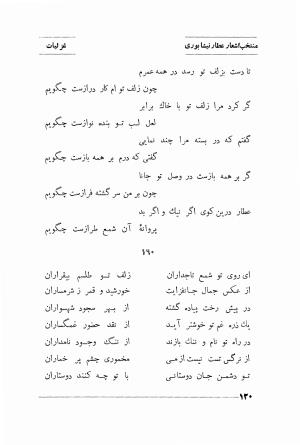 منتخب‌اشعار عطار نیشابوری
غزلیات
تا دست بزلف تو رسد در همه عمرم
چون زلف تو ام کار درازست چگویم
گر کرد مرا زلف تو با خاك برابر
لعل لب تو بنده نوازست چگویم
گفتم که در بسته مرا چند نمایی
گفتی که درم بر همه بازست چگویم
گر بر همه بازست در وصل تو جانا
چون بر من سر گشته فرازست چگویم
عطار درین کوی اگر نیك و اگر بد
پروانهٔ آن شمع طرازست چگویم
۱۹۰
ای روی تو شمع تاجداران
زلف تو طلسم بیقراران
از عکس جمال جانفزایت
خورشید و قمر ز شرمساران
در پیش رخت پیاده گشته
از بهر سجود شهسواران
یك ذره غم تو خوشتر آید
از نقد حضور غمگساران
در راه تو نام و ننگ بازند
از ننگ وجود نامداران
از نرگس تست نیست از می
مخموری چشم پر خماران
تو دشمن جان دوستانی
با تو چه کنند دوستاران
۱۳۰